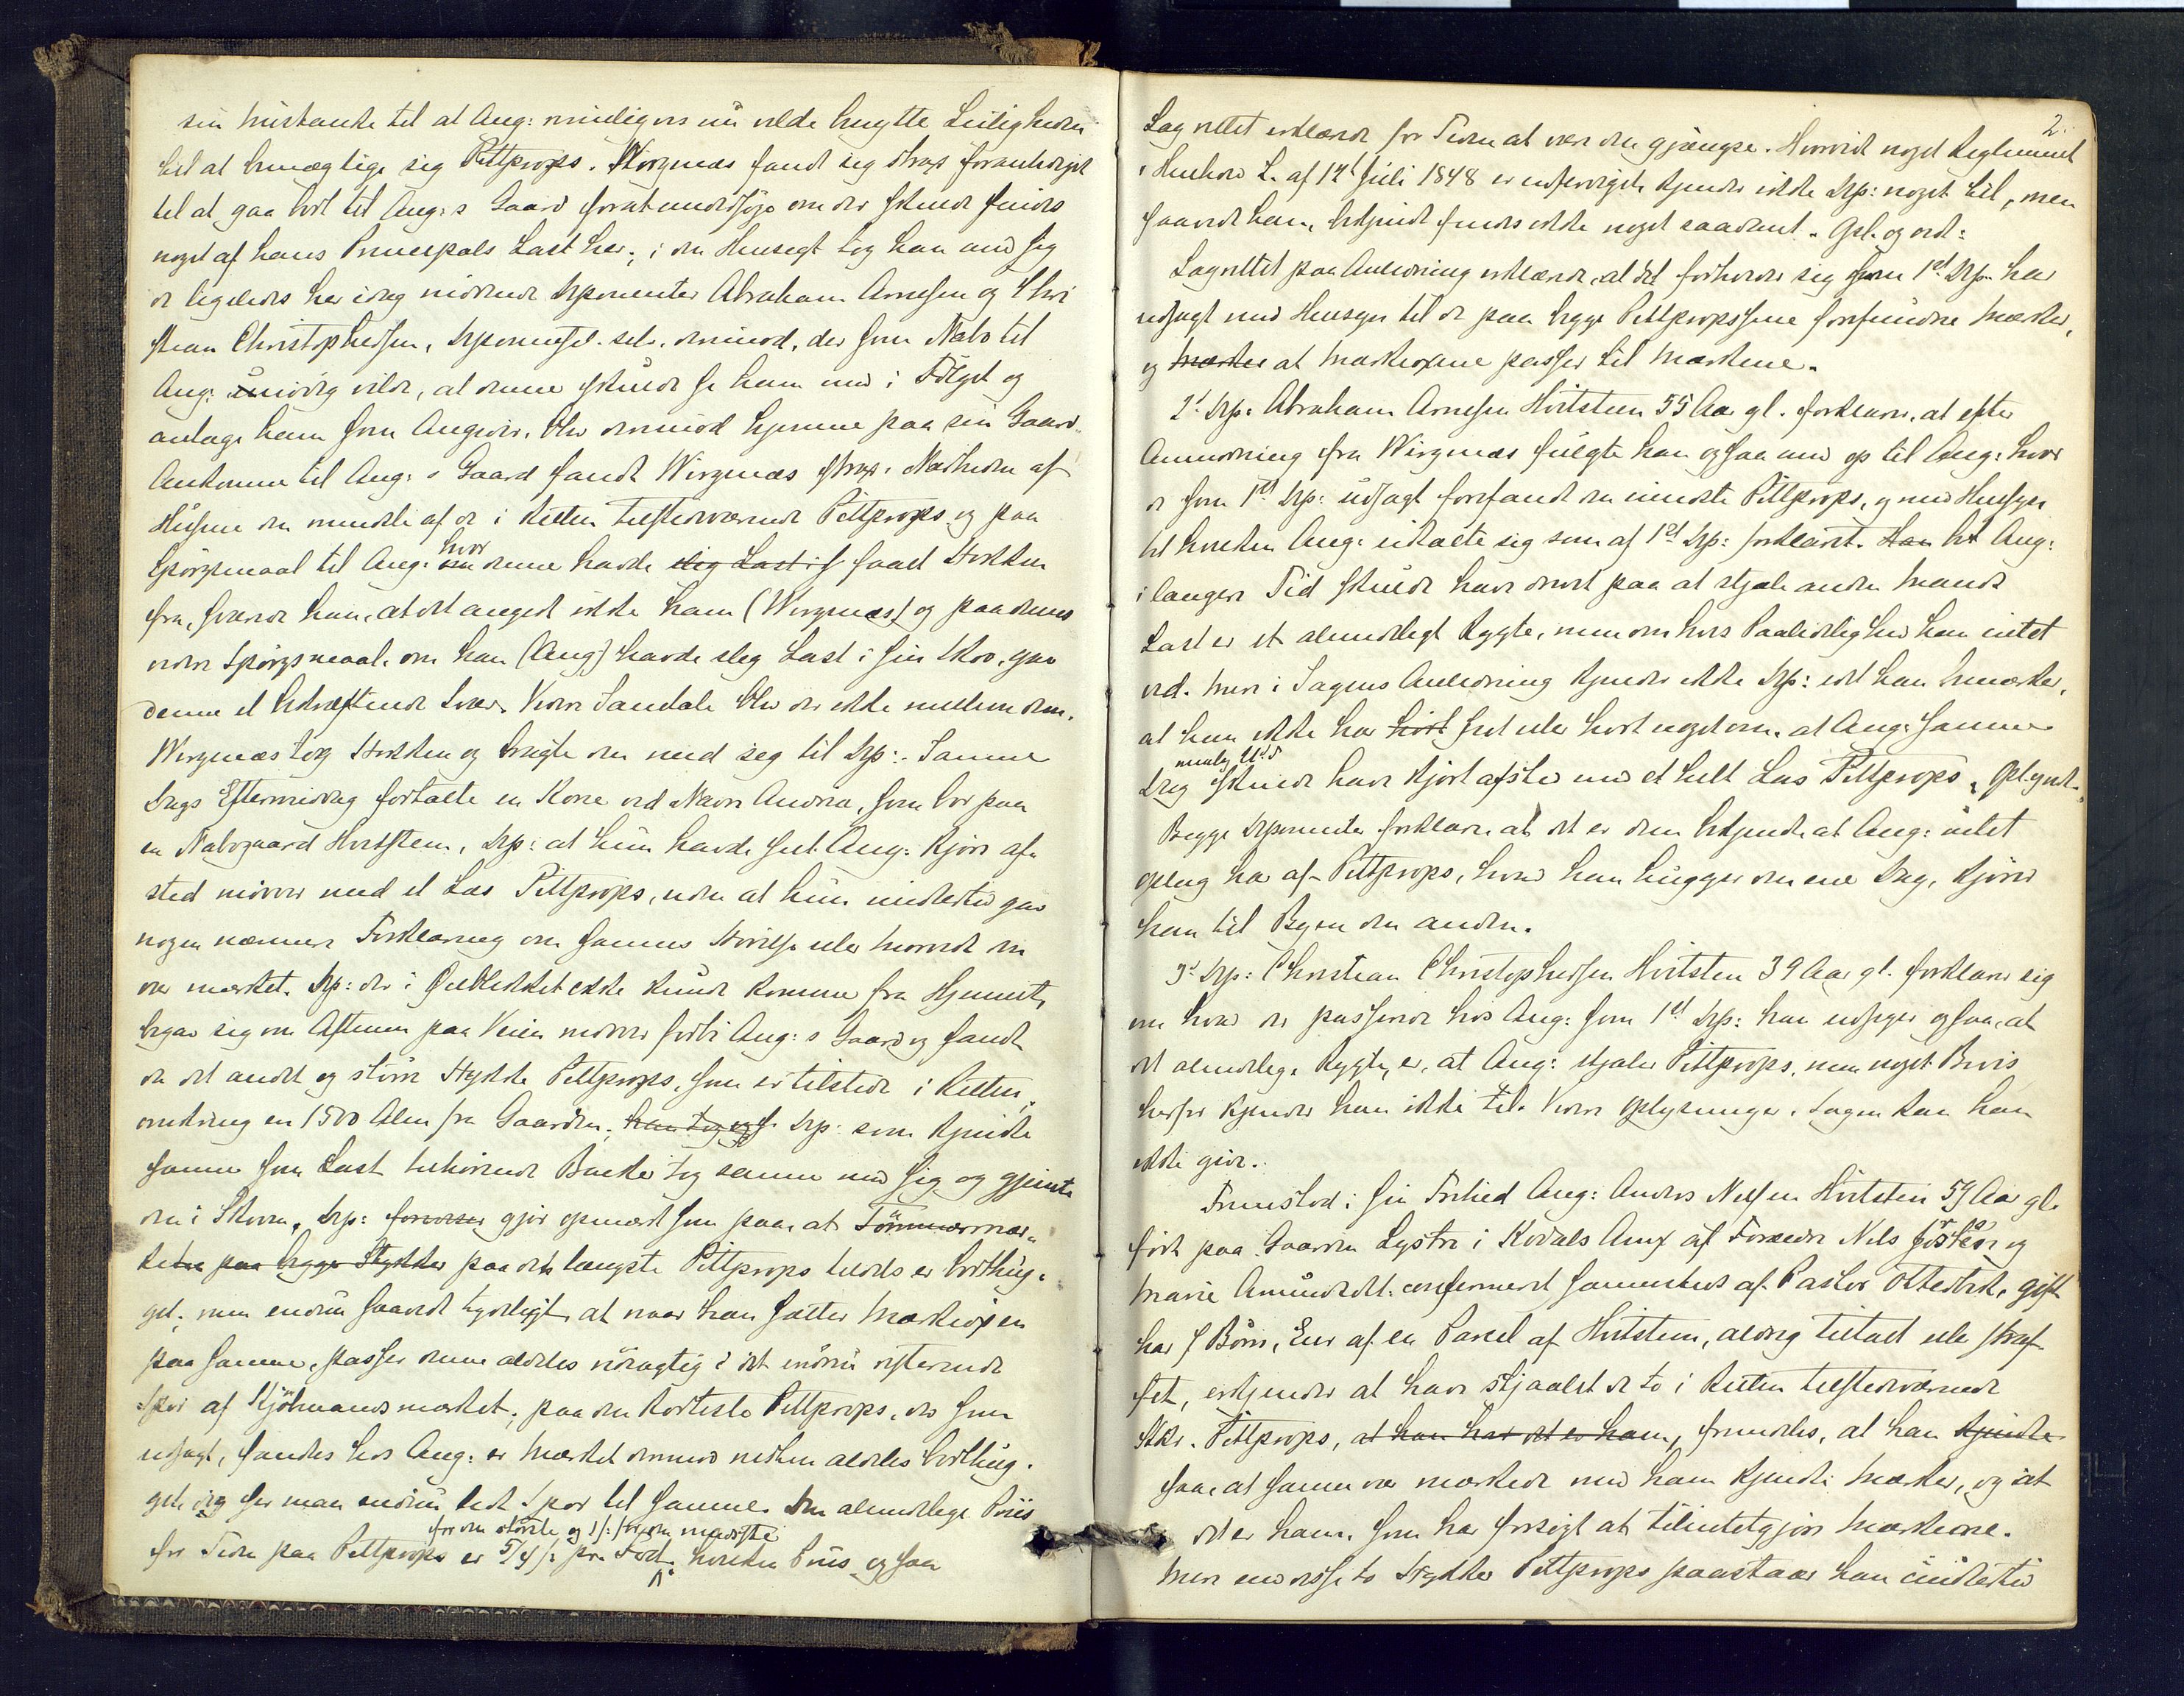 sin Mistanke til at Ang: muligens nu vilde benytte Leiligheden
til at bemægtige sig Pittprops. Wirgenæs fandt sig strax foranlediget
til at gaa bort til Ang:s Gaard forat undersøge om der skulde findes
noget af hans Principals Last her; i den Hensegt tog han med sig
de ligeledes her idag mødende Deponenter Abraham Arnesen og Chri
stian Christophersen, Deponenten selv derimod, der som Nabo til
Ang: nødig vilde, at denne skulde se ham med i Følget og
antage ham som Angiver, blev derimod hjemme paa sin Gaard.
Ankomne til Ang:s Gaard fandt Wirgenæs strax i Nærheden af
Husene den mindste af de i Retten tilstedeværende Pittprops og paa
hvor
Spørgsmaal til Ang: om denne havde slig Last i s faaet Stokken
fra, svarede han, at det angik ikke ham (Wirgenæs) og paa dennes
videre Spørgsmaal om han (Ang) havde slig Last i sin Skov, gav
denne et bekræftende Svar. Videre Samtale blev der ikke mellem dem.
Wirgenæs tog Stokken og bragte den med sig til Dp:. Samme
Dags Eftermiddag fortalte en Kone ved Navn Andrea, som bor paa
en Nabogaard Hvitsten, Dep: at hun havde seet Ang: kjøre af
sted nedover med et Læs Pittprops, uden at hun imidlertid gav
nogen nærmere Forklaring om sammes Størrelse eller hvorvidt den
var mærket. Dp: der i Øieblikket ikke kunde komme fra Hjemmet,
begav sig om Aftenen paa Veien nedover forbi Ang:s Gaard og fandt
da det andet og større Stykke Pittprops, som er tilstede i Retten,
omkring en 1500 Alen fra Gaarden; han tog og s Dep: som kjendte
samme som Last tilhørende Bache tog samme med sig og gjemte
den i Skoven. Dep: foreviser gjør opmærksom paa, at Tømmermær-
kerne paa begge Stykker paa det længste Pittprops tildels er borthug-
get, men endnu saavidt tydeligt, at naar han sætter Mærkeøxen
paa samme, passer denne aldeles nøiagtig i det endnu resterende
Spor af Kjøbmandsmærket; paa den korteste Pittprops, der som
udsagt, fandtes hos Ang: er Mærket derimod næsten aldeles borthug-
get, dog ser man endnu lidt Spor til samme. Den almindelige Priis
for den største og 1/: for den mindste
for Tiden paa Pittprops er 5/4/: pr. Fod, hvilken Priis ogsaa
2.
Lagrettet erklærede for Tiden at være den gjængse. Hvorvidt noget Reglement
i Henhold L. af 14 Juli 1848 er udfærdiget kjender ikke Dep: noget til, men
saavidt ham bekjendt findes ikke noget saadant. Opl. og ved:
Lagrettet paa Anledning erklærede, at det forholder sig som 1st Dep har
udsagt med Hensyn til de paa begge Pittpropsene forefundne Mærker,
og Mærker at Mærkeøxene passer til Mærkene.
2d Dep: Abraham Arnesen Hvitsteen 55 Aar gl. forklarer, at efter
Anmodning fra Wirgenæs fulgte han ogsaa med op til Ang: hvor
de som 1st Dep: udsagt forefandt den mindste Pittprops, og med Hensyn
til hvilken Ang: udtalte sig som af 1st Dep: forklaret. Han At Ang:
i længere Tid skulde have drevet paa at stjæle anden Mands
Last er et almindeligt Rygte, men om hvis Paalidelighed han intet
ved. Mere i Sagens Anledning kjender ikke Dp: idet han bemærker,
at han ikke har hørt seet eller hørt noget om, at Ang: samme
nemlig
Dag skulde have kjørt afsted med et helt Læs Pittprops. Oplyst.
Begge Deponenter forklarer at det er dem bekjendt at Ang: intet
Oplag har af Pittprops, hvad han hugger den ene Dag, kjører
han til Byen den anden.
3d Dep: Christian Christophersen Hvitsten 39 Aar gl. forklarer sig
om hvad der passerede hos Ang: som 1st Dep: han udsiger ogsaa, at
det almindelige Rygte er, at Ang: stjæler Pittprops, men noget Bevis
herfor kjender han ikke til. Videre Oplysninger i Sagen kan han
ikke give.
Fremstod i sin Frihed Ang: Anders Nilsen Hvitsten 57 Aar gl.
født paa Gaarden Lystra i Kodals Anx af Forældre Nils og
Marie Amundsdt: confirmeret sammesteds af Pastor Otterbek, gift
har 5 Børn, Eier af en Parcel af Hvitsten, aldrig tiltalt eller straf
fet, erkjender at have stjaalet de to i Retten tilstedeværende
Stkr. Pittprops, at han har det er ham, fremdeles, at han kjendte
saa, at samme var mærkede med ham kjendte Mærker, og at
det er ham, som har forsøgt at tilintetgjøre Mærkerne.
Mere end disse to Stykker Pittprops paastaar han imidlertid